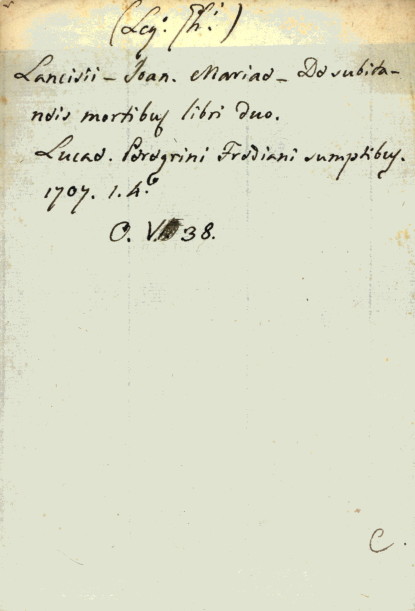 (Leg: Ph:)
Lancisii - Joan. Mariae - De subita-
neis mortibus libri duo.
Lucae. Peregrini Frediani sumptibus.
1707. 1. 4.º
O. V. 38.
C.